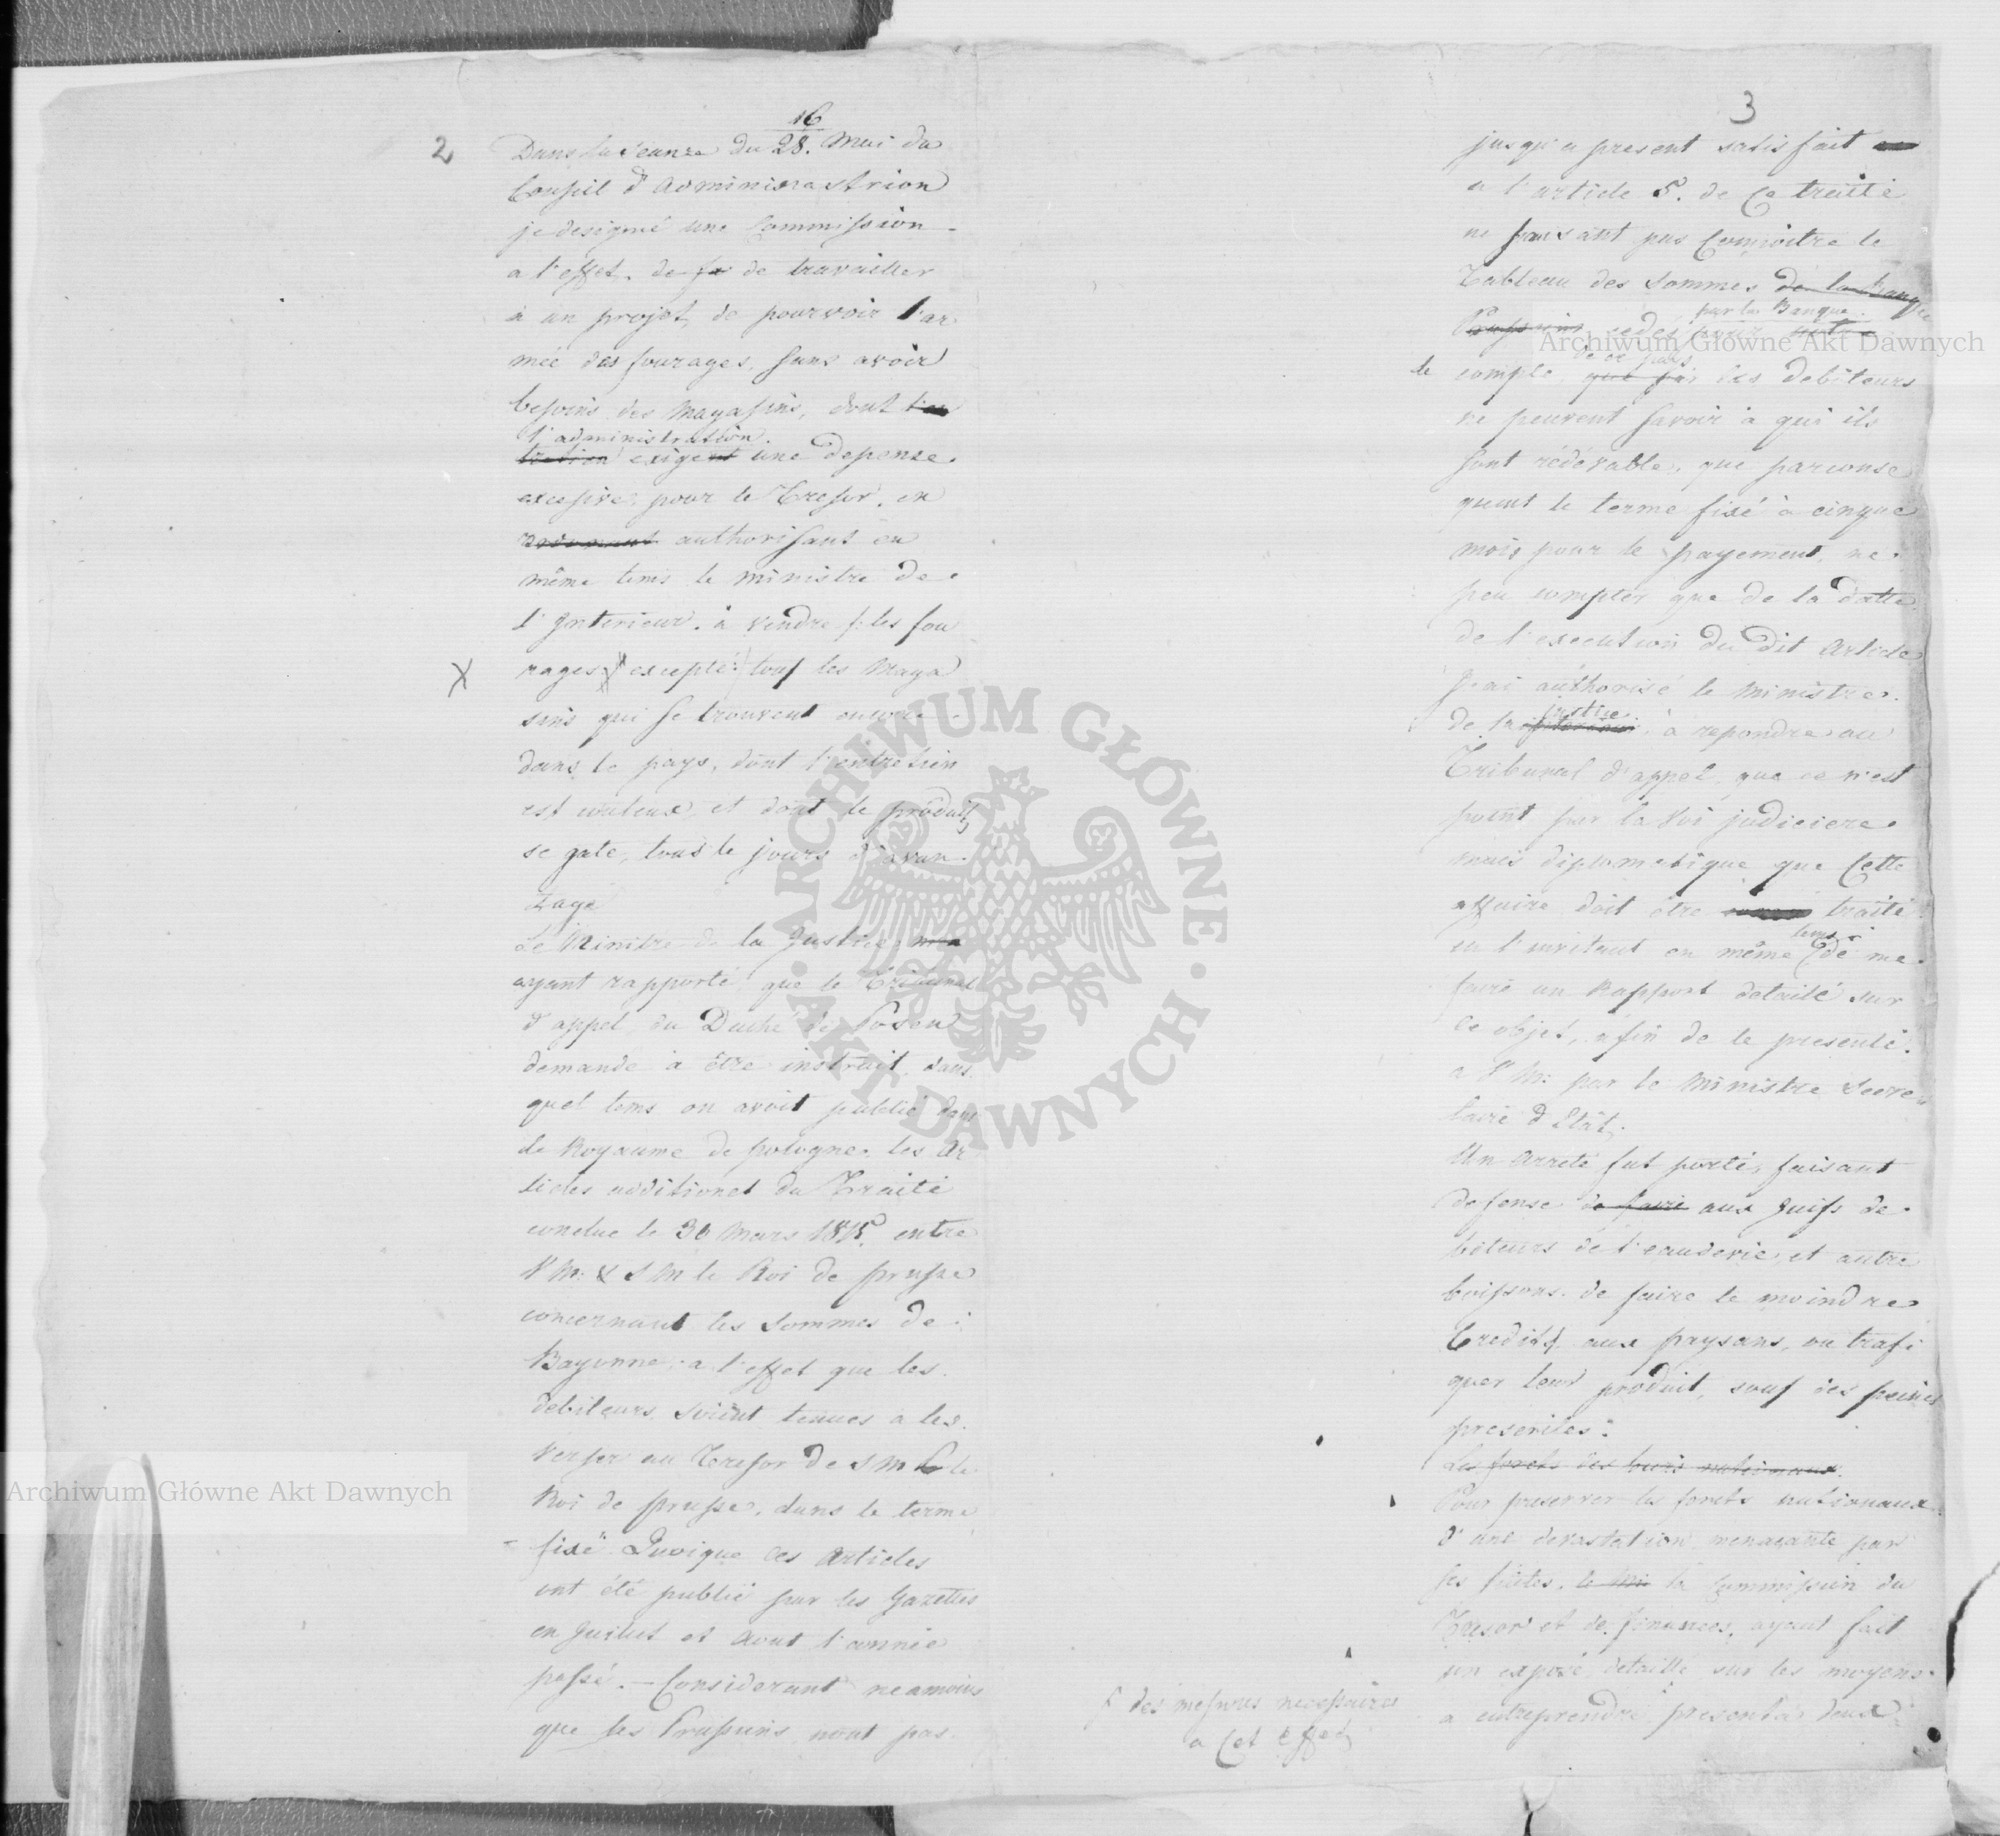 2
16
Dans la séance du 28. Mai du
Conseil d'Administration
je designé une Commission
a l'effet. de fa de travailler
à un projet, de pourvoir l'ar
mée des fourages, sans avoir
besoins des Magasins, dont l'ad
l'administration.
tration exigent une depense
excesive pour le Tresor, en
authorisant en
même tems le ministre de
l'Interieur. à vendre /: les fou
X rages excepté :/ tous les Maga
sins qui se trouvent encore
dans le pays, dont l'entretien
est couteux, et dont le produit
se gate, tous le jours d'avan
tage
Le Ministre de la Justice, m'a
ayant rapporté, que le Tribunal
d'appel, du Duché de Posen
demande à être instruit, dans
quel tems on avoit publié dans
le Royaume de pologne, les Ar
ticles additionel du Traité
conclue le 30 Mars 1815. entre
V M: & S M le Roi de prusse
concernant les sommes de
Bayonne, a l'effet que les
debiteurs soient tenues a les
verser au Tresor de S M le
Roi de prusse, dans le terme
fixé. Quoique ces Articles
ont été publié par les Gazettes
en Juilliet et Aout l'année
passé. — Considerant neamoins
que les Prussiens nont pas
3
jusqu'a present satisfait
a l'article 5. de Ce traité
ne faisant pas Connoitre le
Tableau des sommes de la Banque
par la Banque
Prussien cedés pour notre
de ce pais
le compte, que les debiteurs
ne peuvent savoir à qui ils
sont rédevable, que parconse
quent le terme fixé à cinque
mois pour le payement, ne
peu compter que de la datte
de l'execution du dit Article
J'ai authorisé le Ministre
justice
de la interieur, à repondre au
Tribunal d'appel, que ce n'est
point par la voi judiciere
mais diplomatique que Cette
affaire doit être traité
tems
en l'invitant en même de me
faire un Rapport detaillé sur
ce objet, afin de le presenté
a V M: par le Ministre Secre
taire d'Etat.
Un Arreté fut porté, faisant
defense de faire aux Juifs de
biteurs de l'eauderie, et autre
boissons de faire le moindre
Credits aux paysans, ou trafi
quer leur produit, souf des peines
prescrites:
Les forets des bois nationaux.
Pour preserver les forets nationaux
d'une devastation menaçante par
le Mi la Commission du
Tresor et de finances, ayant fait
un exposé, detaillé sur les moyens
a entreprendre presenta deux
f des mesures necessaires
a Cet effet
ARCHIWUM GŁÓWNE AKT DAWNYCH
Archiwum Główne Akt Dawnych
Archiwum Główne Akt Dawnych